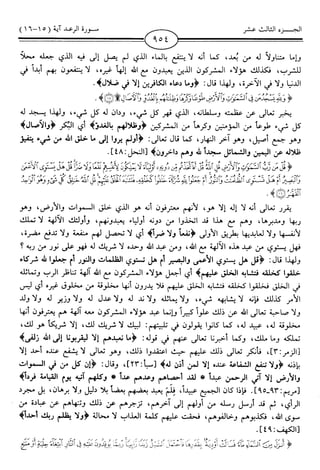 الجزء الثالث عشر
٩٥٤
سورة الرعد آية (١٥-١٦)
ومتناولاً له من بُعد، كما أنه لا ينتفع بالماء الذي لم يصل إلى فيه الذي جعله محلاً
للشرب، فكذلك هؤلاء المشركون الذين يعبدون مع الله إلهاً غيره، لا ينتفعون بهم أبداً في
الدنيا ولا في الآخرة، ولهذا قال: ﴿وما دعاء الكافرين إلا في ضلال﴾.
يخبر تعالى عن عظمته وسلطانه، الذي قهر كل شيء، ودان له كل شيء، ولهذا يسجد له
كل شيء طوعاً من المؤمنين وكرهاً من المشركين ﴿وظلالهم بالغدو﴾ أي البُكر ﴿والآصال﴾
وهو جمع أصيل، وهو آخر النهار، كما قال تعالى: ﴿أولم يروا إلى ما خلق الله من شيء يتفيؤ
ظلاله عن اليمين والشمائل سجداً لله وهم داخرون﴾ [النحل: ٤٨].
يقرر تعالى أنه لا إله إلا هو، لأنهم معترفون أنه هو الذي خلق السموات والأرض، وهو
ربها ومدبرها، وهم مع هذا قد اتخذوا من دونه أولياء يعبدونهم، وأولئك الآلهة لا تملك
لأنفسها ولا لعابديها بطريق الأولى ﴿نفعاً ولا ضراً﴾ أي لا تحصل لهم منفعة ولا تدفع مضرة،
فهل يستوي من عبد هذه الآلهة مع الله، ومن عبد الله وحده لا شريك له فهو على نور من ربه ؟
ولهذا قال: ﴿قل هل يستوي الأعمى والبصير أم هل تستوي الظلمات والنور أم جعلوا لله شركاء
خلقوا كخلقه فتشابه الخلق عليهم﴾ أي أجعل هؤلاء المشركون مع الله آلهة تناظر الرب وتماثله
في الخلق فخلقوا كخلقه فتشابه الخلق عليهم فلا يدرون أنها مخلوقة من مخلوق غيره أي ليس
الأمر كذلك فإنه لا يشابهه شيء، ولا يماثله ولا ند له ولا عدل له ولا وزير له ولا ولد
ولا صاحبة تعالى الله عن ذلك علواً كبيراً وإنما عبد هؤلاء المشركون معه آلهة هم يعترفون أنها
مخلوقة له، عبيد له، كما كانوا يقولون في تلبيتهم: لبيك لا شريك لك، إلا شريكاً هو لك،
تملكه وما ملك، وكما أخبرنا تعالى عنهم في قوله: ﴿ما نعبدهم إلا ليقربونا إلى الله زلفى﴾
[الزمر: ٣]، فأنكر تعالى ذلك عليهم حيث اعتقدوا ذلك، وهو تعالى لا يشفع عنده أحد إلا
بإذنه ﴿ولا تنفع الشفاعة عنده إلا لمن أذن له﴾ [سبأ: ٢٣]، وقال: ﴿إن كل من في السموات
والأرض إلا آتي الرحمن عبداً * لقد أحصاهم وعدهم عداً * وكلهم آتيه يوم القيامة فرداً﴾
[مريم: ٩٣-٩٥]. فإذا كان الجميع عبيداً، فلِمَ يعبد بعضهم بعضاً بلا دليل ولا برهان، بل مجرد
الرأي، ثم قد أرسل رسله من أولهم إلى آخرهم، تزجرهم عن ذلك وتنهاهم عن عبادة من
سوى الله، فكذبوهم وخالفوهم، فحقت عليهم كلمة العذاب لا محالة ﴿ولا يظلم ربك أحداً﴾
[الكهف: ٤٩].